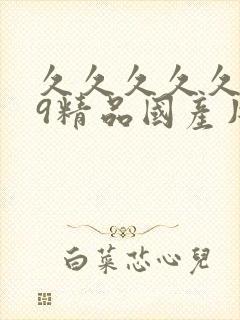 久久久久久
9精品國產
白菜芯心兒